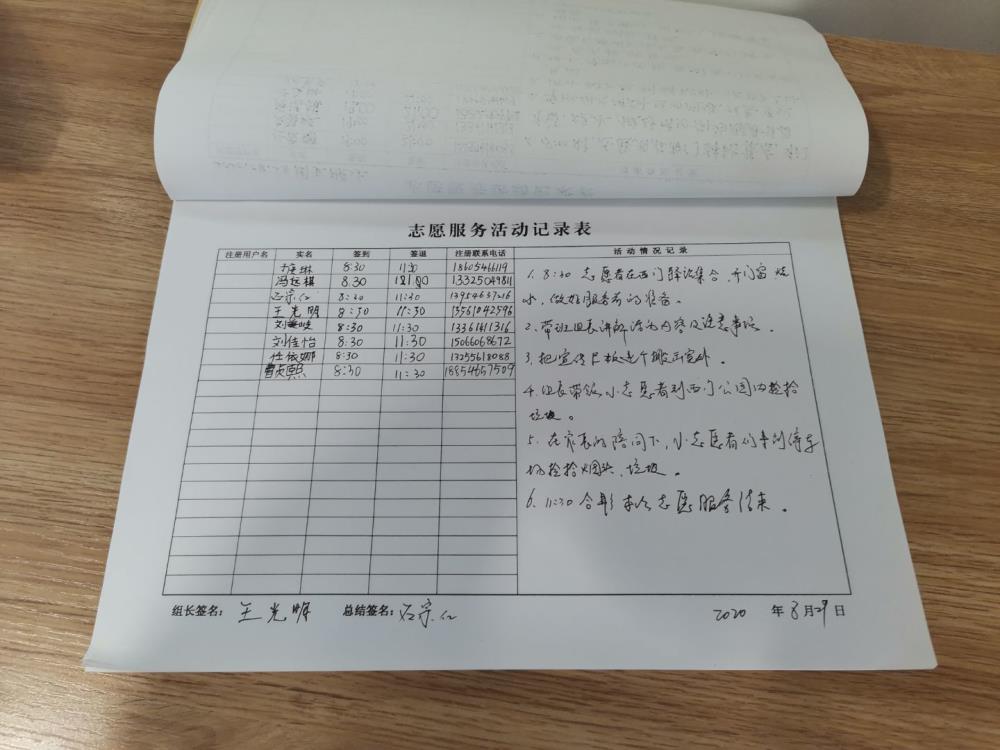 志愿服务活动记录表
注册用户名 实名 签到 签退 注册联系电话 活动情况记录
琳 8:30 11:30 18605466119
冯运棋 8:30 13325049811
石宗仁 8:30 11:30
王光明 8:30 11:30 13561042596
刘 8:30 11:30 13361411316
刘佳怡 8:30 11:30 15066068672
任依娜 8:30 11:30 13255618088
曹贞熙 8:30 11:30 18854657509
1. 8:30 志愿者在西门驿站集合,开门窗烧
水,做好服务前的准备。
2. 带班组长讲解活动内容及注意事项。
3. 把宣传展板 个搬至室外。
4. 组长带领小志愿者到西门公园内捡拾
垃圾。
5. 在家长的陪同下,小志愿者们来到停车
场捡拾烟头、垃圾。
6. 11:30 合影 本次志愿服务结束。
组长签名: 王光明 总结签名: 石宗仁 2020 年 8 月 29 日